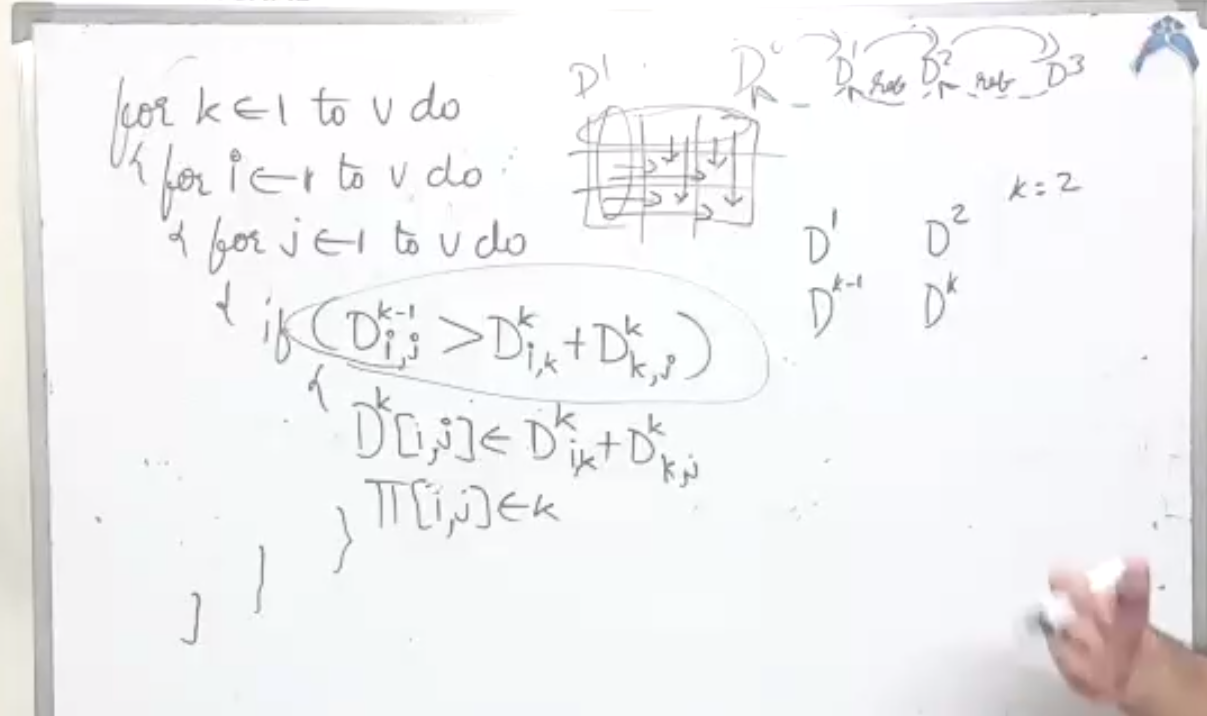 for k ← 1 to v do
{ for i ← 1 to v do
{ for j ← 1 to v do
{ if (D^{k-1}_{i,j} > D^k_{i,k} + D^k_{k,j})
{
D^k[i,j] ← D^k_{ik} + D^k_{k,j}
π[i,j] ← k
}
}
}
D^1
D^0 D^1 ref D^2 ref D^3
k = 2
D^1 D^2
D^{k-1} D^k